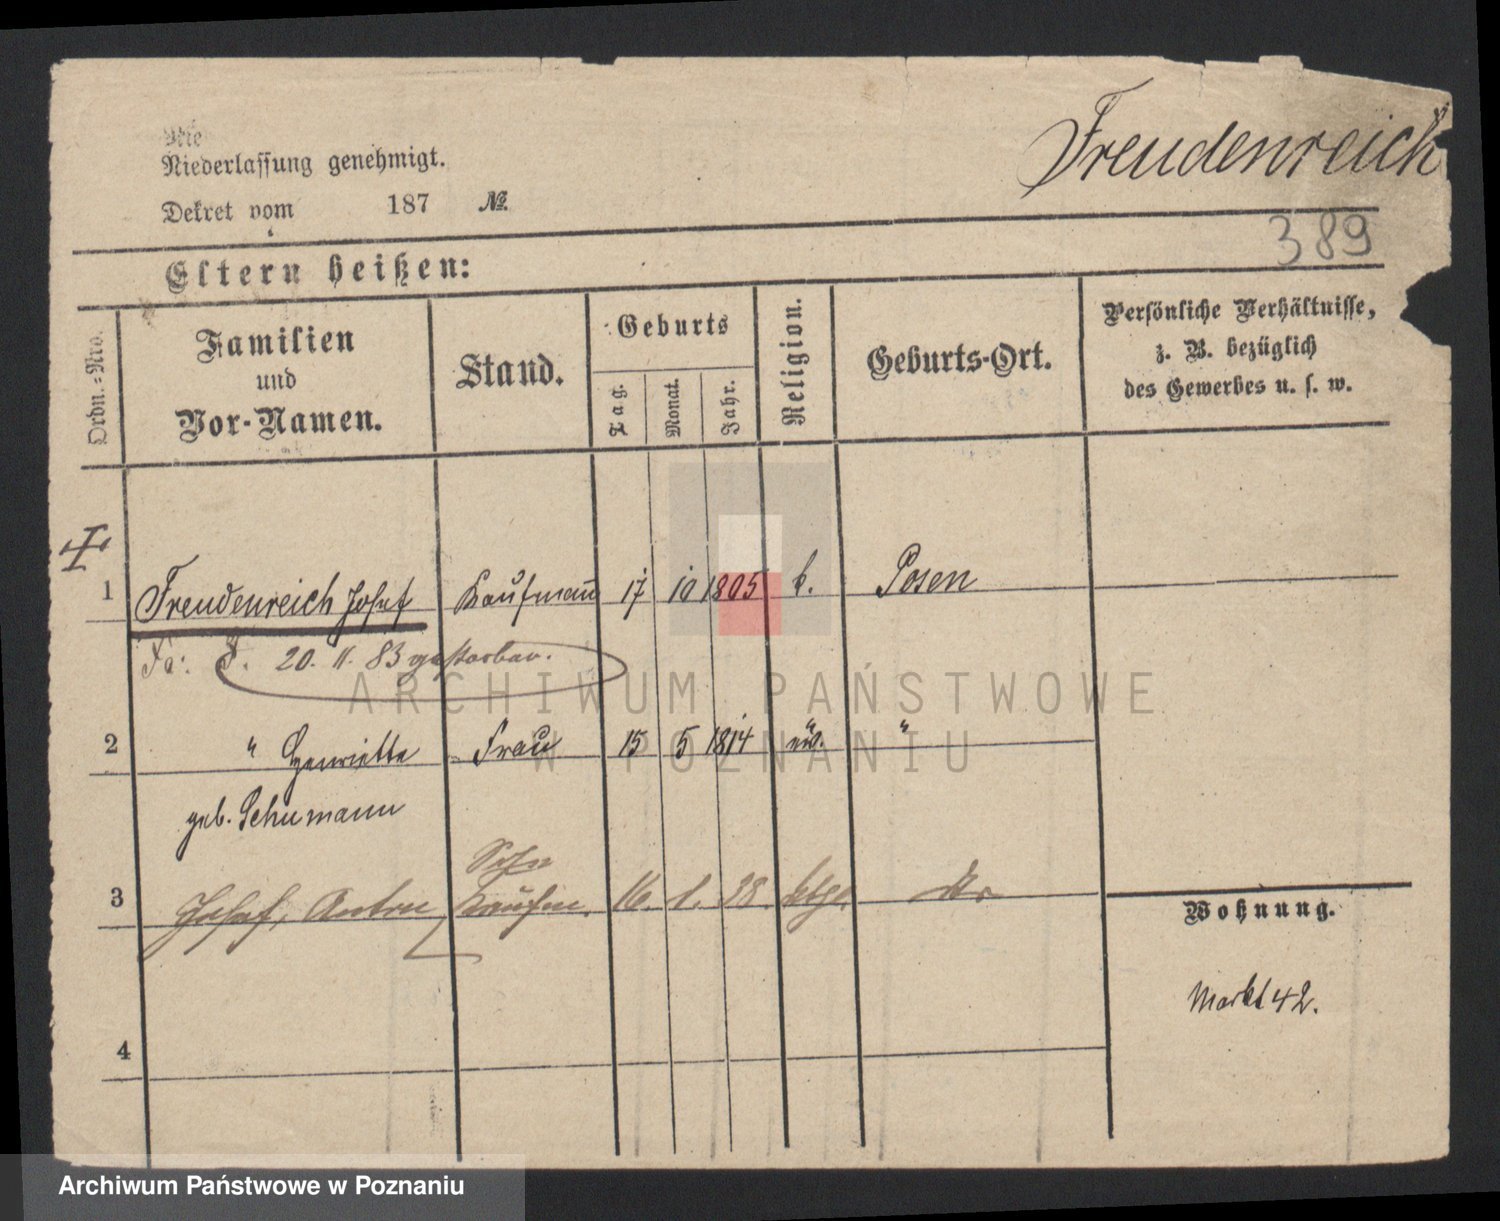 Die
Niederlassung genehmigt.
Dekret vom 187 No.
Freudenreich
389
Eltern heißen:
Ordn.=Nro.
Familien
und
Vor-Namen.
Stand.
Geburts
Tag.
Monat.
Jahr.
Religion.
Geburts-Ort.
Persönliche Verhältnisse,
z. B. bezüglich
des Gewerbes u. s. w.
1 Freudenreich Josef Kaufmann 17 10 1805 k. Posen
20. 11. 83 gestorben.
2 " Henriette Frau 15 5 1814 ev. "
geb. Schumann
Sohn
3 Josef, Anton Kaufm. 16. 1. 38 kthl. do
Wohnung.
Markt 42.
4
ARCHIWUM PAŃSTWOWE
W POZNANIU
Archiwum Państwowe w Poznaniu